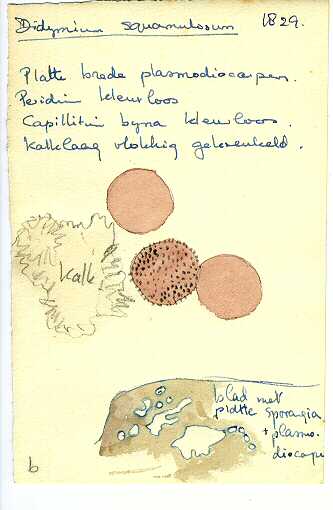 Didymium squamulosum 1829.
Platte brede plasmodiocarpen.
Peridium kleurloos
Capillitium byna kleurloos.
Kalklaag vlokkig gekronkeld.
Kalk
blad met
platte sporangia
+ plasmo-
diocarpe
b